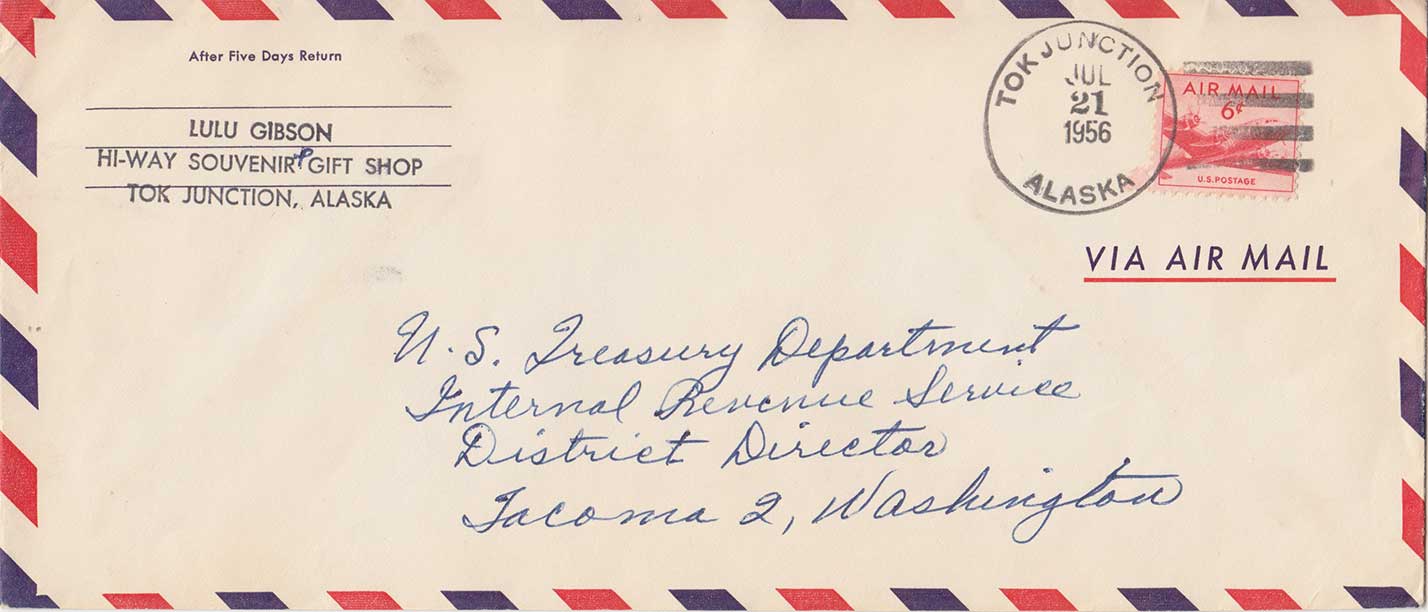 After Five Days Return
LULU GIBSON
HI-WAY SOUVENIR & GIFT SHOP
TOK JUNCTION, ALASKA
TOK JUNCTION
JUL
21
1956
ALASKA
AIR MAIL
6¢
U.S. POSTAGE
VIA AIR MAIL
U.S. Treasury Department
Internal Revenue Service
District Director
Tacoma 2, Washington